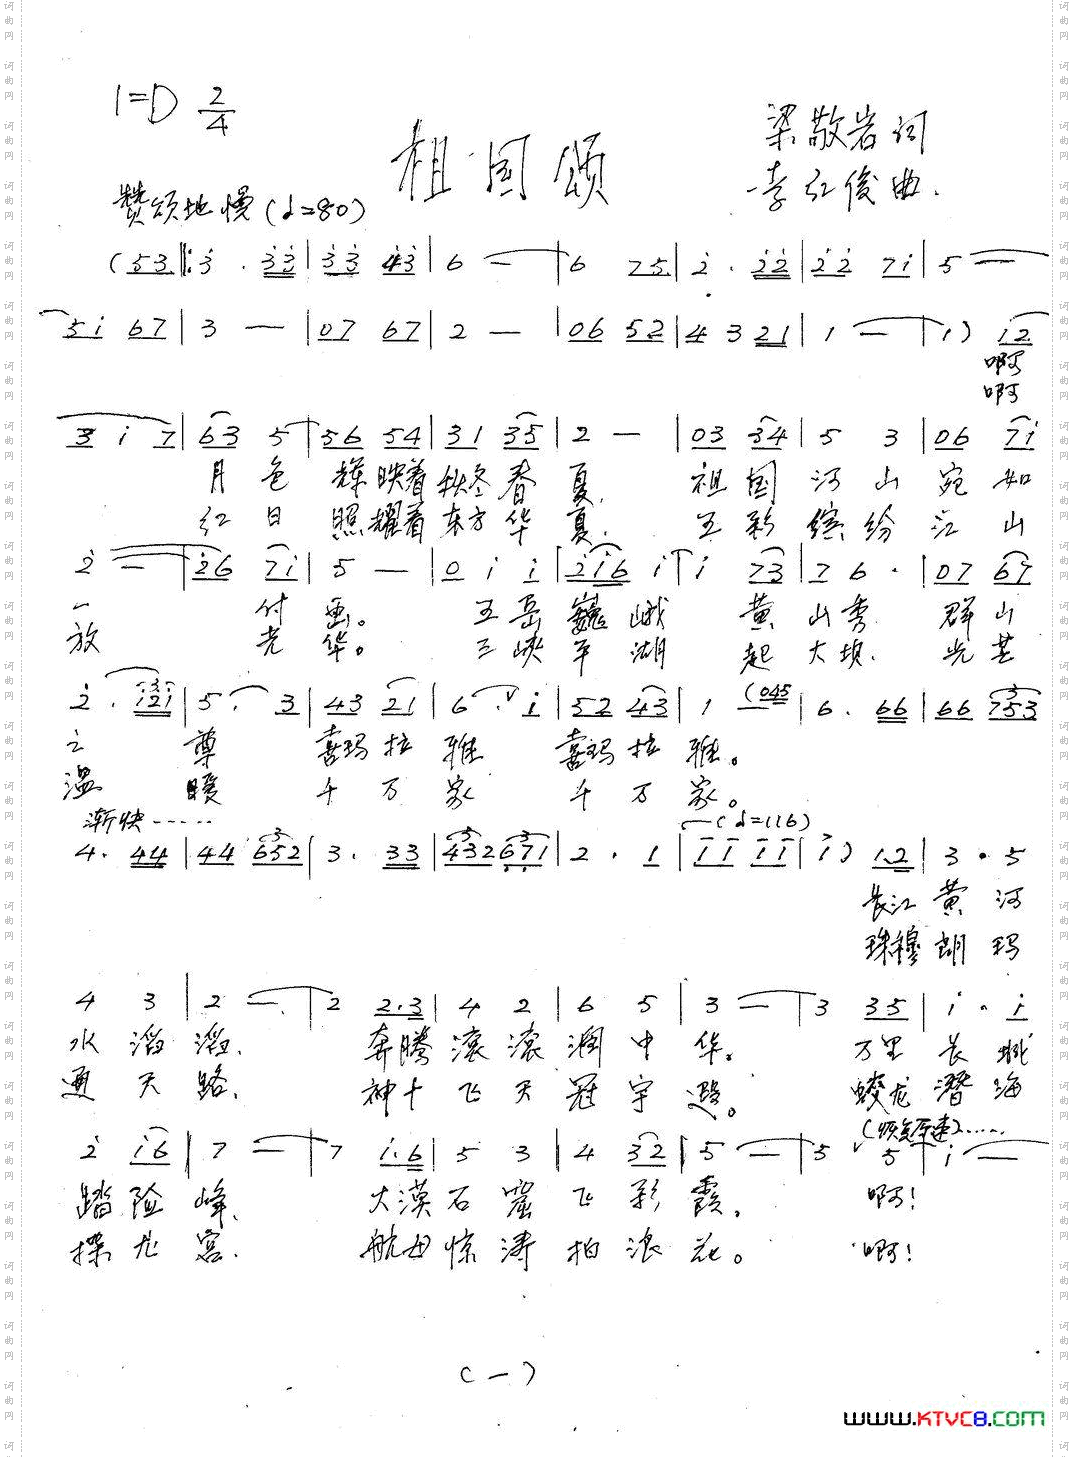 1=D 2/4
祖国颂
梁敬岩词
李红俊曲.
赞颂地 慢 (♩=80)
(53‖:3 . 33|33 43|6 —|6 75|2 . 22|22 71|5 —
51 67|3 —|07 67|2 —|06 52|4 3 21|1 —|1) 12
啊
啊
3 1 7|63 5|56 54|31 35|2 —|03 34|5 3|06 71
月色 辉映着 秋冬春夏. 祖国河山宛如
红日 照耀着 东方华夏. 五彩缤纷江山
2 —|26 71|5 —|0 1 1|216 1|1 73|7 6 .|07 67
一 付画。 五岳巍峨 黄山秀 群山
放 光华。 三峡平湖 起大坝. 光芒
2 . 121|5 . 3|43 21|6 . 1|52 43|1 (045|6 . 66|66 753
之 尊 喜玛拉雅 喜玛拉雅。
温暖 千万家 千万家。
渐快······
(♩=116)
4 . 44|44 652|3 . 33|432 671|2 . 1|11 11|1) 1.2|3 . 5
长江黄河
珠穆朗玛
4 3|2 —|2 2.3|4 2|6 5|3 —|3 35|1 . 1
水滔滔、 奔腾滚滚润中华。 万里长城
通天路、 神十飞天冠宇 。 蛟龙潜海
(恢复原速)······
2 16|7 —|7 1.6|5 3|4 32|5 —|5 5|1 —
踏险峰、 大漠石窟飞彩霞。 啊!
探龙宫. 航母惊涛拍浪花。 啊!
(一)
www.KTVC8.com